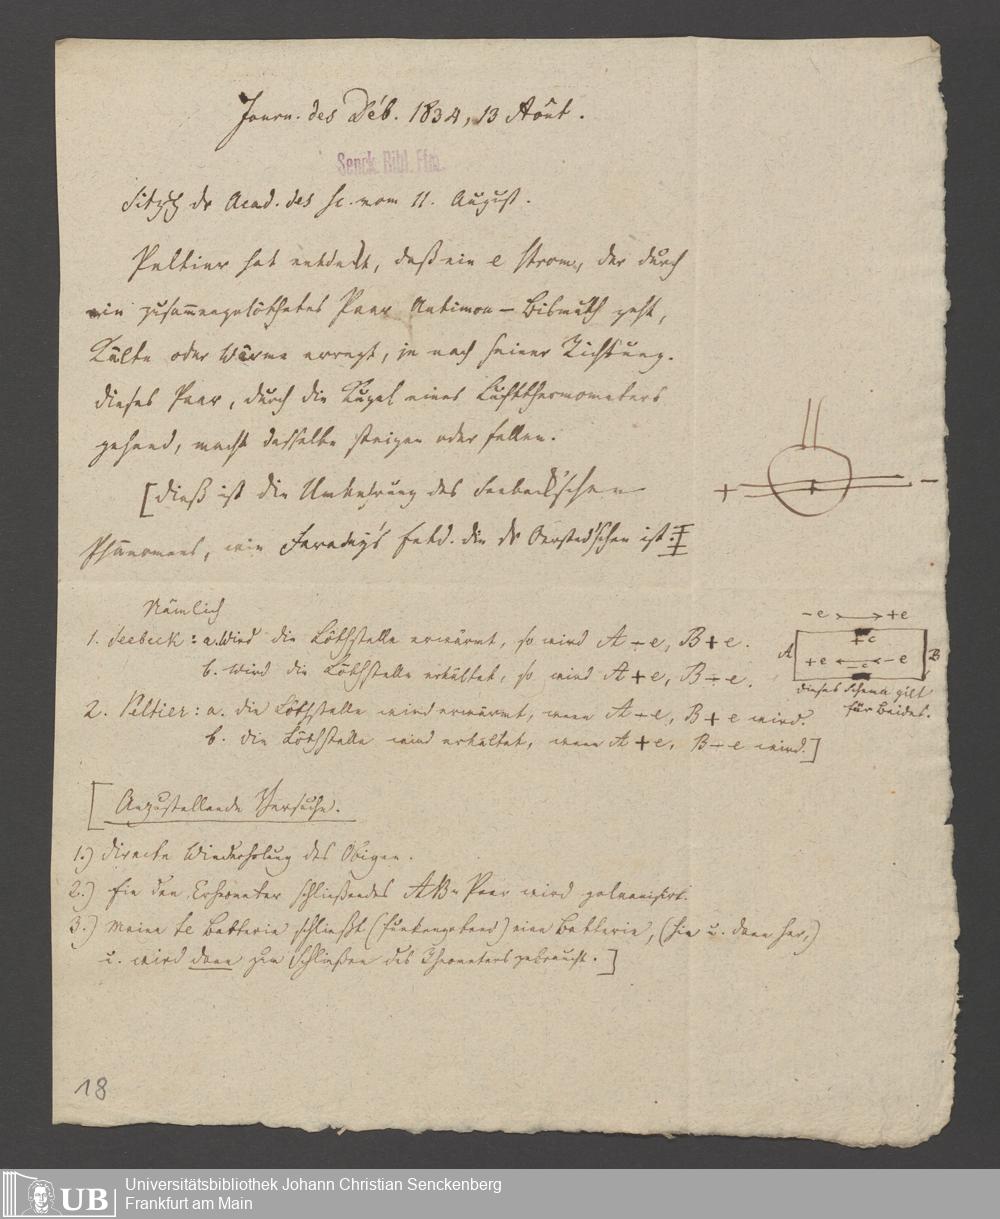 Journ. des Déb. 1834, 13 Aôut.
Senck. Bibl. Ffm.
Sitzg dr Acad. des Sc. vom 11. August.
Peltier hat entdeckt, daß ein e Strom, der durch
ein zusam̄engelöthetes Paar Antimon – Bismuth geht,
Kälte oder Wärme erregt, je nach seiner Richtung.
dieses Paar, durch die Kugel eines Luftthermometers
gehend, macht dasselbe steigen oder fallen.
+ + –
[dieß ist die Umkehrung des Seebeck'schen
Phänomens, wie Faraday's Entd. die dr Oersted'schen ist.
Nämlich
– e > → + e
1. Seebeck: a. Wird die Löthstelle erwärmt, so wird A – e, B + e.
A + c B
+ e ← – e
b. Wird die Löthstelle erkältet, so wird A + e, B – e.
– c
dieses Schema gilt
für Beides.
2. Peltier: a. die Löthstelle wird erwärmt, wenn A – e, B + e wird.
b. die Löthstelle wird erkältet, wenn A + e, B – e wird.]
[Anzustellende Versuche.
1.) directe Wiederholung des Obigen.
2.) Ein den schließendes AB Paar wird galvanisirt.
3.) Meine te Batterie schließt (funkengebend) eine Batterie, (hin u. dann her,)
u. wird dann zum Schließen des gebraucht.]
18
UB
Universitätsbibliothek Johann Christian Senckenberg
Frankfurt am Main